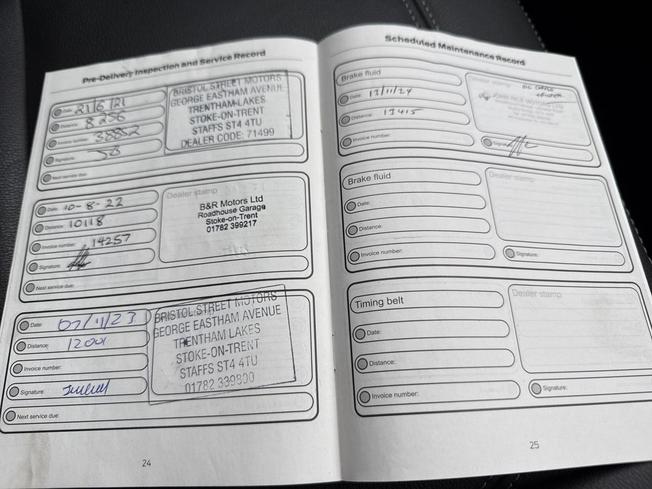 Pre-Delivery Inspection and Service Record
Date: 21/6/21
Distance: 8256
Invoice number: 38852
Signature:
Next service due:
BRISTOL STREET MOTORS
GEORGE EASTHAM AVENUE
TRENTHAM LAKES
STOKE-ON-TRENT
STAFFS ST4 4TU
DEALER CODE: 71499
Date: 10-8-22
Distance: 10118
Invoice number: 14257
Signature:
Next service due:
Dealer stamp
B&R Motors Ltd
Roadhouse Garage
Stoke-on-Trent
01782 399217
Date: 07/11/23
Distance: 12001
Invoice number:
Signature:
Next service due:
BRISTOL STREET MOTORS
GEORGE EASTHAM AVENUE
TRENTHAM LAKES
STOKE-ON-TRENT
STAFFS ST4 4TU
01782 339800
24
Scheduled Maintenance Record
Brake fluid
Date: 13/11/24
Distance: 13415
Invoice number:
Dealer stamp
Signature:
Brake fluid
Date:
Distance:
Invoice number:
Dealer stamp
Signature:
Timing belt
Date:
Distance:
Invoice number:
Dealer stamp
Signature:
25